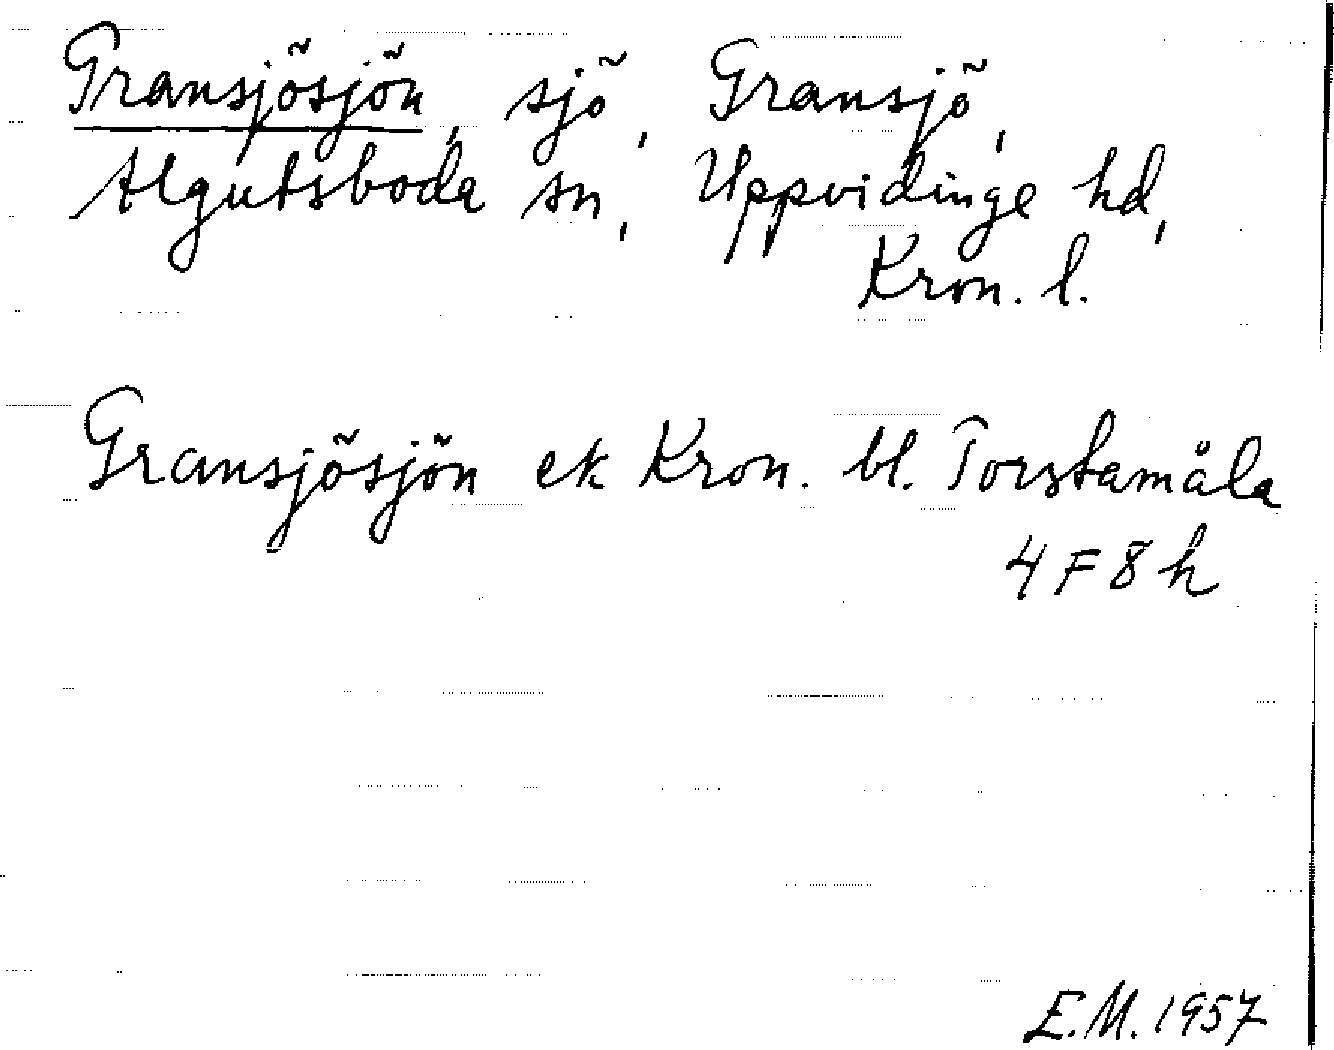 Gransjösjön, sjö, Gransjö,
Algutsboda sn, Uppvidinge hd,
Kron. l.
Gransjösjön ek Kron. bl. Torstamåla
4 F 8 h
E.M. 1957